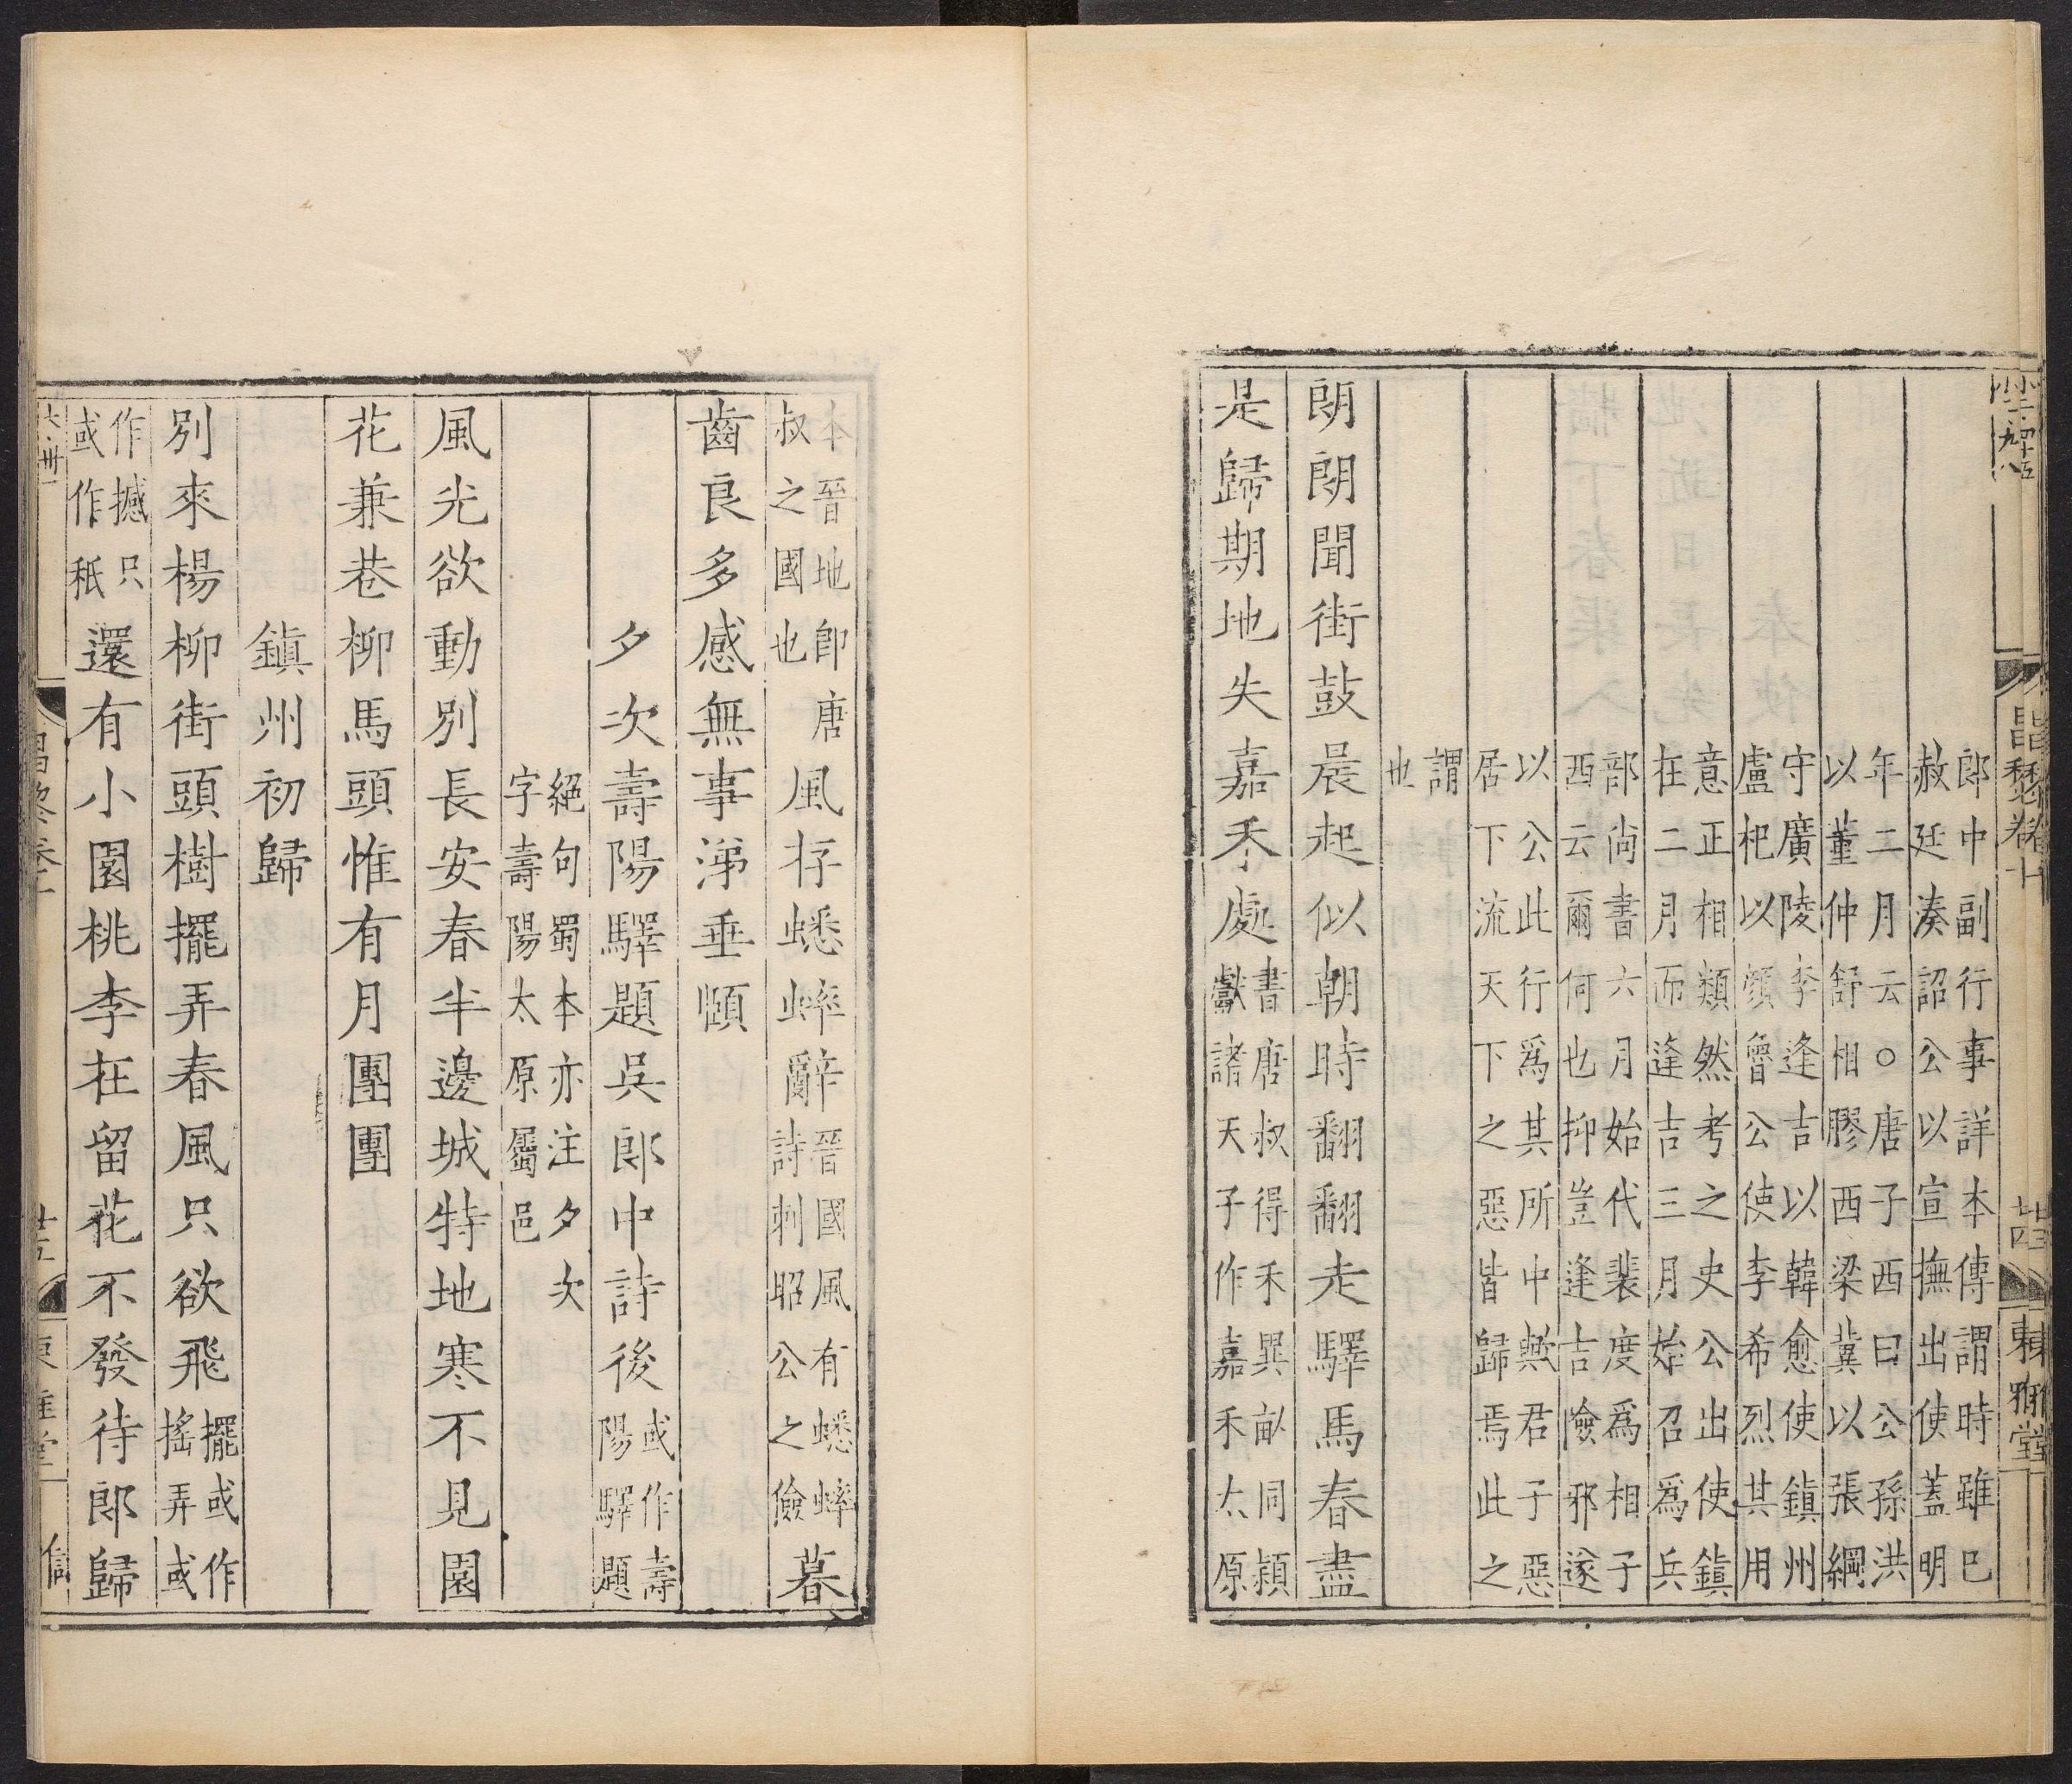 郎中副行事詳本傳謂時雖已
赦廷湊詔公以宣撫出使蓋明
年二月云○唐子西曰公孫洪
以董仲舒相膠西梁冀以張綱
守廣陵李逢吉以韓愈使鎮州
盧杞以顏魯公使李希烈其用
意正相類然考之史公出使鎮
在二月而逢吉三月始召爲兵
部尚書六月始代裴度爲相子
西云爾何也抑豈逢吉險邪遂
以公此行爲其所中歟君子惡
居下流天下之惡皆歸焉此之
謂
也
朗朗聞街鼓晨起似朝時翻翻走驛馬春盡
是歸期地失嘉禾處書唐叔得禾異畝同穎獻諸天子作嘉禾太原
本晉地卽唐叔之國也風存蟋蟀辭晉國風有蟋蟀詩刺昭公之儉暮
齒良多感無事涕垂頤
夕次壽陽驛題吳郎中詩後或作壽陽驛題
絕句蜀本亦注夕次
字壽陽太原屬邑
風光欲動別長安春半邊城特地寒不見園
花兼巷柳馬頭惟有月團團
鎮州初歸
別來楊柳街頭樹擺弄春風只欲飛擺或作搖弄或
作撼只或作秖還有小園桃李在留花不發待郎歸
昌黎卷十
東雅堂